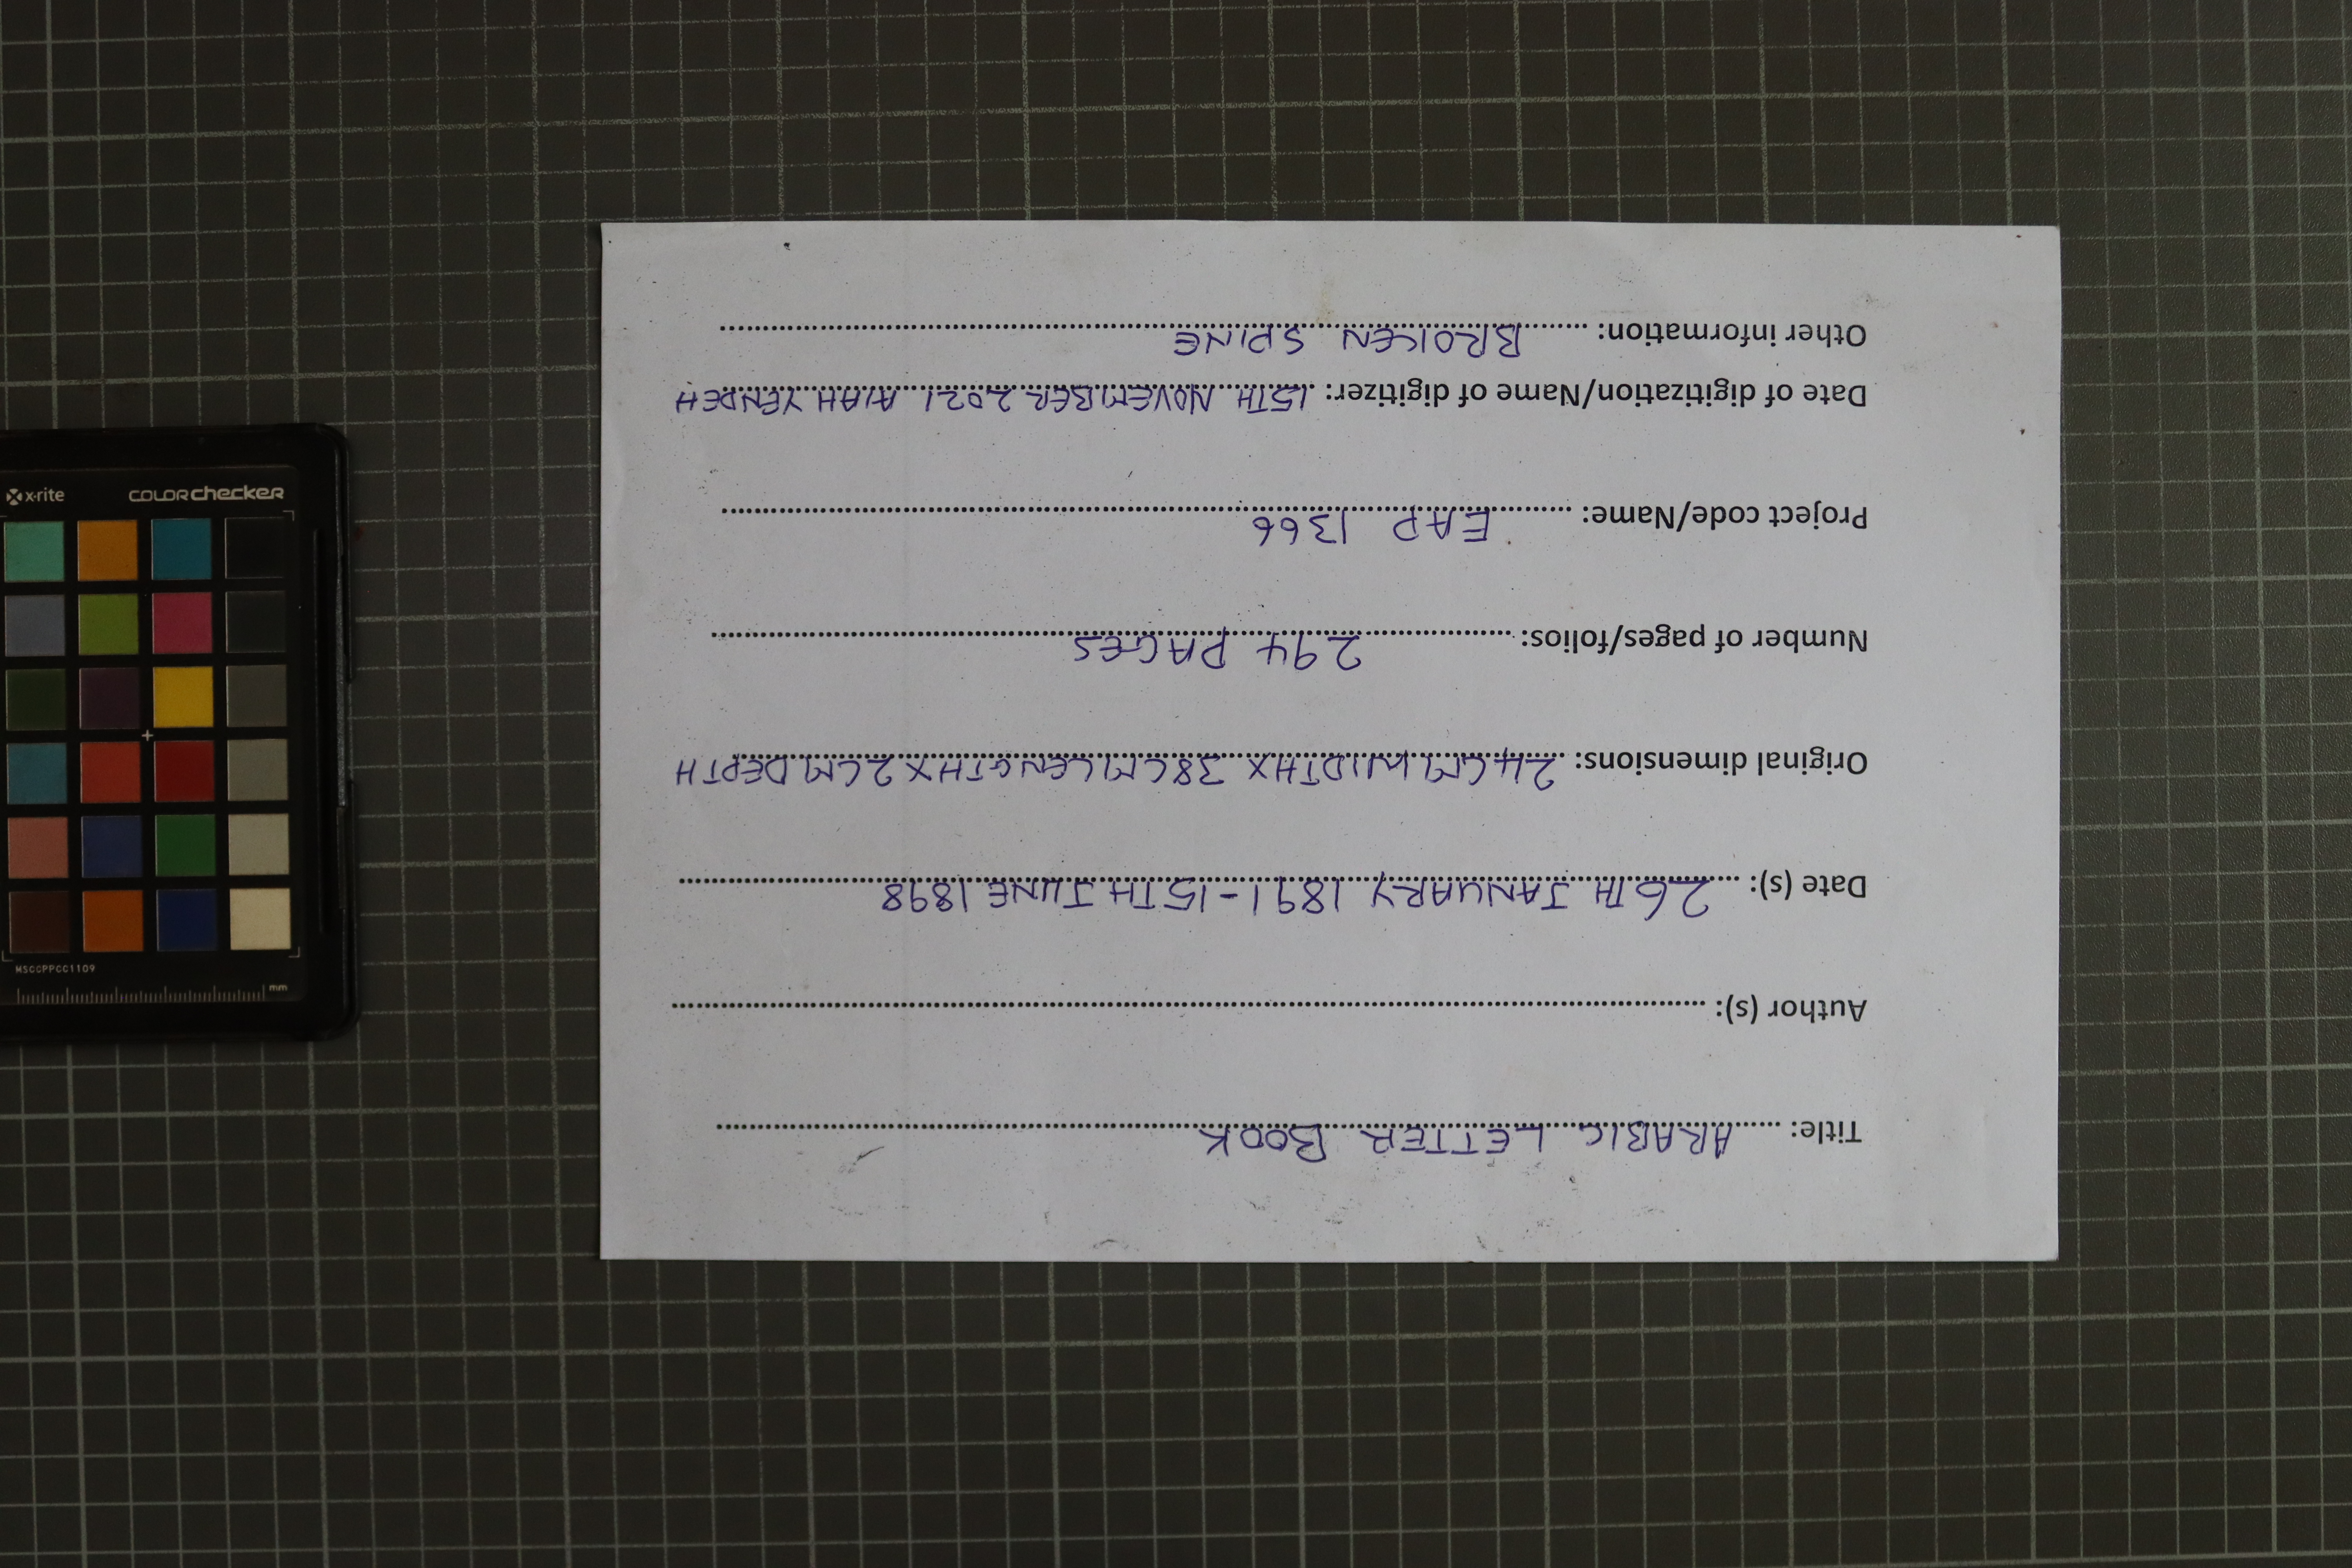 Title: ARABIC LETTER BOOK
Author (s):
Date (s): 26TH JANUARY 1891-15TH JUNE 1898
Original dimensions: 24CM WIDTH X 38CM LENGTH X 2CM DEPTH
Number of pages/folios: 294 PAGES
Project code/Name: EAP 1366
Date of digitization/Name of digitizer: 15TH NOVEMBER 2021 AIAH YENDEH
Other information: BROKEN SPINE
x-rite colorchecker
MSCCPPCC1109
mm